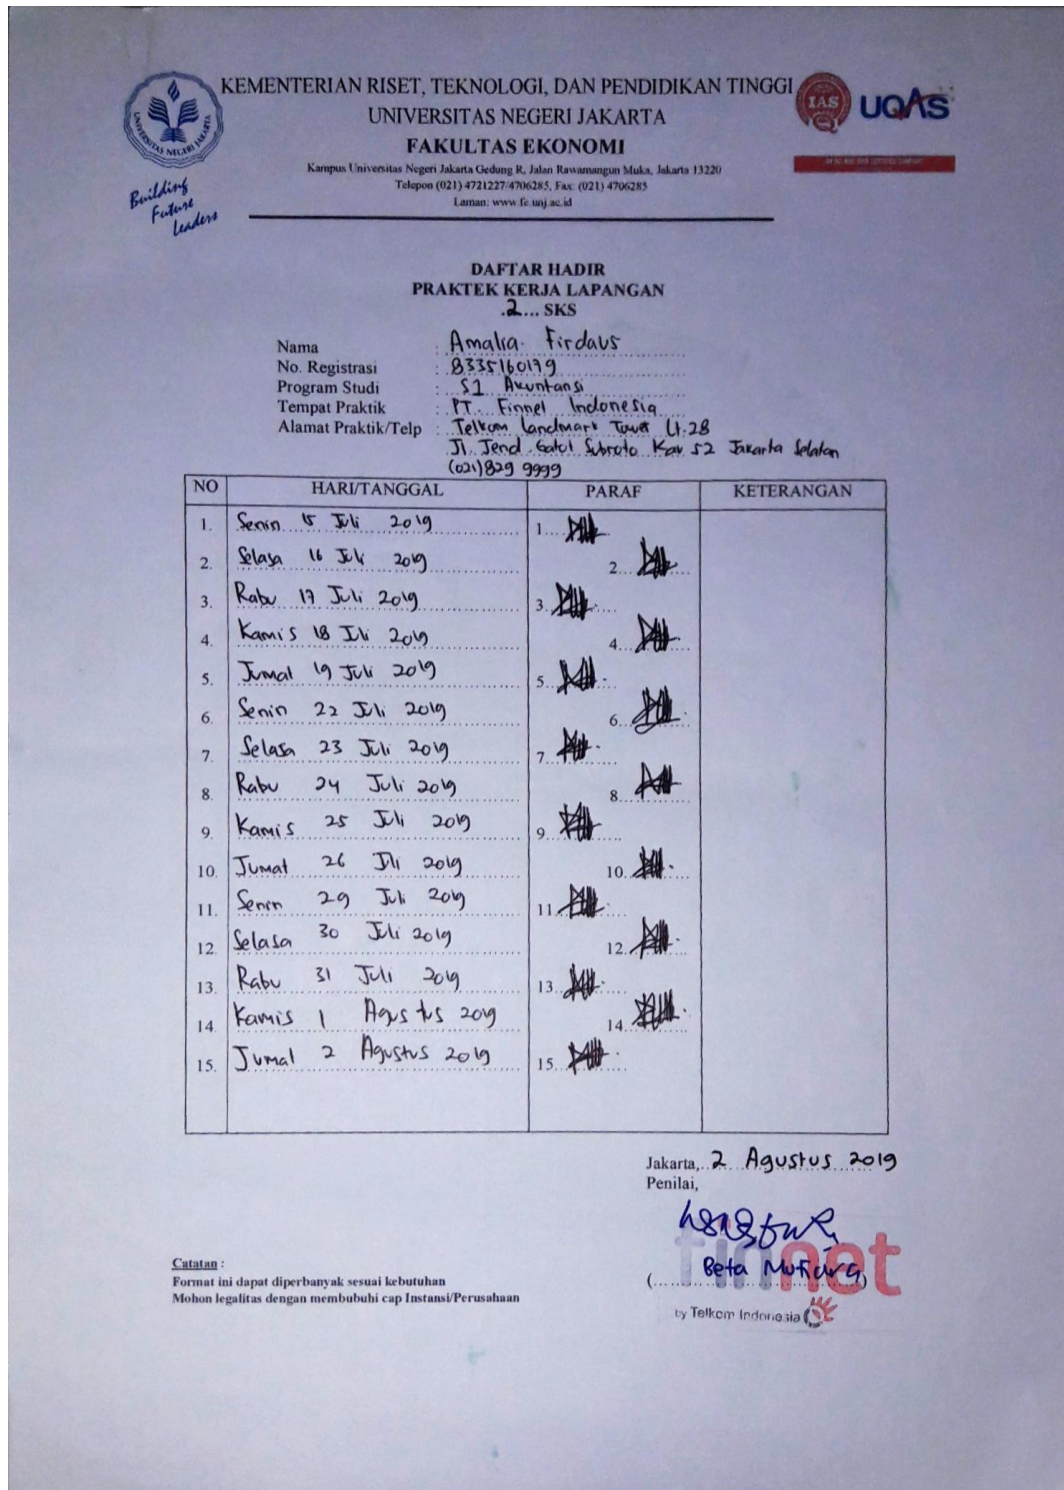 KEMENTERIAN RISET, TEKNOLOGI, DAN PENDIDIKAN TINGGI
UNIVERSITAS NEGERI JAKARTA
FAKULTAS EKONOMI
Kampus Universitas Negeri Jakarta Gedung R, Jalan Rawamangun Muka, Jakarta 13220
Telepon (021) 4721227/4706285, Fax: (021) 4706285
Laman: www.fe.unj.ac.id
UNIVERSITAS NEGERI JAKARTA
Building
Future
Leaders
IAS
UQAS
DAFTAR HADIR
PRAKTEK KERJA LAPANGAN
.2... SKS
Nama : Amalia Firdaus
No. Registrasi : 8335160179
Program Studi : S1 Akuntansi
Tempat Praktik : PT. Finnet Indonesia
Alamat Praktik/Telp : Telkom Landmark Tower Lt.28
Jl. Jend. Gatot Subroto Kav 52 Jakarta Selatan
(021) 829 9999
NO HARI/TANGGAL PARAF KETERANGAN
1. Senin 15 Juli 2019 1.
2. Selasa 16 Juli 2019 2.
3. Rabu 17 Juli 2019 3.
4. Kamis 18 Juli 2019 4.
5. Jumat 19 Juli 2019 5.
6. Senin 22 Juli 2019 6.
7. Selasa 23 Juli 2019 7.
8. Rabu 24 Juli 2019 8.
9. Kamis 25 Juli 2019 9.
10. Jumat 26 Juli 2019 10.
11. Senin 29 Juli 2019 11.
12. Selasa 30 Juli 2019 12.
13. Rabu 31 Juli 2019 13.
14. Kamis 1 Agustus 2019 14.
15. Jumat 2 Agustus 2019 15.
Jakarta, 2 Agustus 2019
Penilai,
finnet
(Beta Mutiara)
by Telkom Indonesia
Catatan :
Format ini dapat diperbanyak sesuai kebutuhan
Mohon legalitas dengan membubuhi cap Instansi/Perusahaan